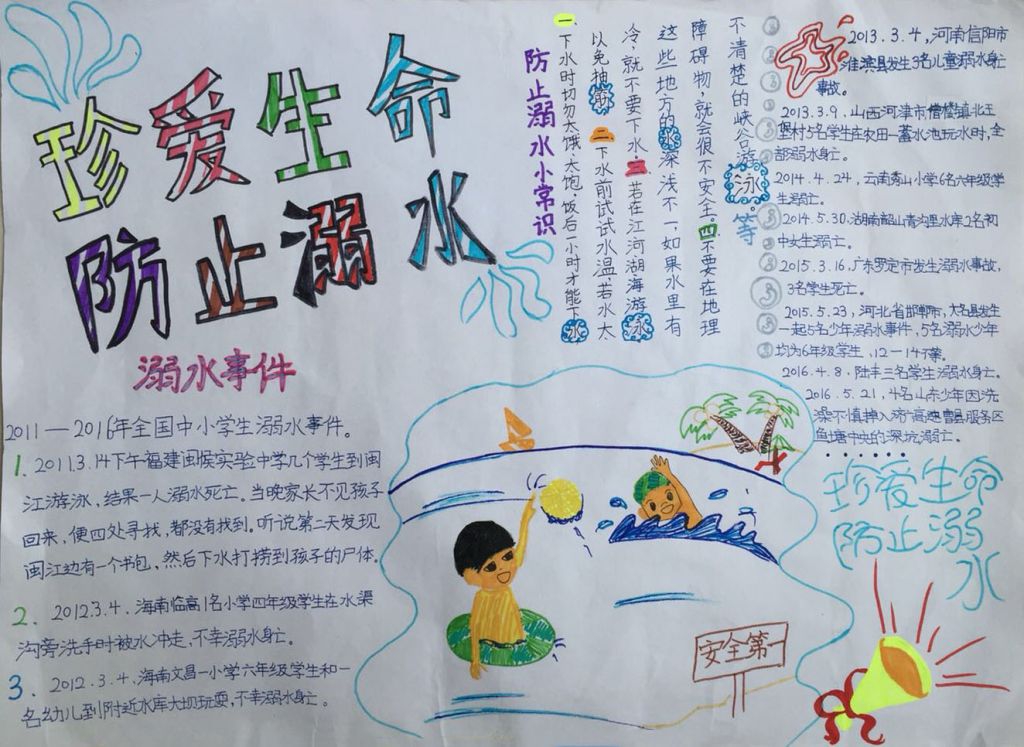 珍爱生命
防止溺水
溺水事件
2011—2016年全国中小学生溺水事件。
1. 2011.3.14下午福建闽侯实验中学几个学生到闽
江游泳,结果一人溺水死亡。当晚家长不见孩子
回来,便四处寻找,都没有找到。听说第二天发现
闽江边有一个书包,然后下水打捞到孩子的尸体。
2. 2012.3.4.海南临高1名小学四年级学生在水渠
沟旁洗手时被水冲走,不幸溺水身亡。
3. 2012.3.4.海南文昌一小学六年级学生和一
名幼儿到附近水库大坝玩耍,不幸溺水身亡。
防止溺水小常识
一.下水时切勿太饿、太饱。饭后一小时才能下水
以免抽筋 二.下水前试试水温,若水太
冷,就不要下水.三.若在江河湖海游泳
这些地方的水深浅不一,如果水里有
障碍物,就会很不安全.四.不要在地理
不清楚的峡谷游泳。等
2013.3.4,河南信阳市
淮滨县发生3名儿童溺水身亡
事故。
2013.3.9.山西河津市僧楼镇北王
堡村5名学生在农田一蓄水池玩水时,全
部溺水身亡。
2014.4.24,云南秀山小学6名六年级学
生溺亡。
2014.5.30.湖南韶山青沟里水库2名初
中女生溺亡。
2015.3.16.广东罗定市发生溺水事故,
3名学生死亡。
2015.5.23,河北省邯郸市,大名县发生
一起5名少年溺水事件,5名溺水少年
均为6年级学生,12—14岁。
2016.4.8.陆丰三名学生溺水身亡。
2016.5.21,4名山东少年因洗
澡不慎掉入济广高速曹县服务区
鱼塘中央的深坑溺亡。
......
珍爱生命
防止溺
水
安全第一